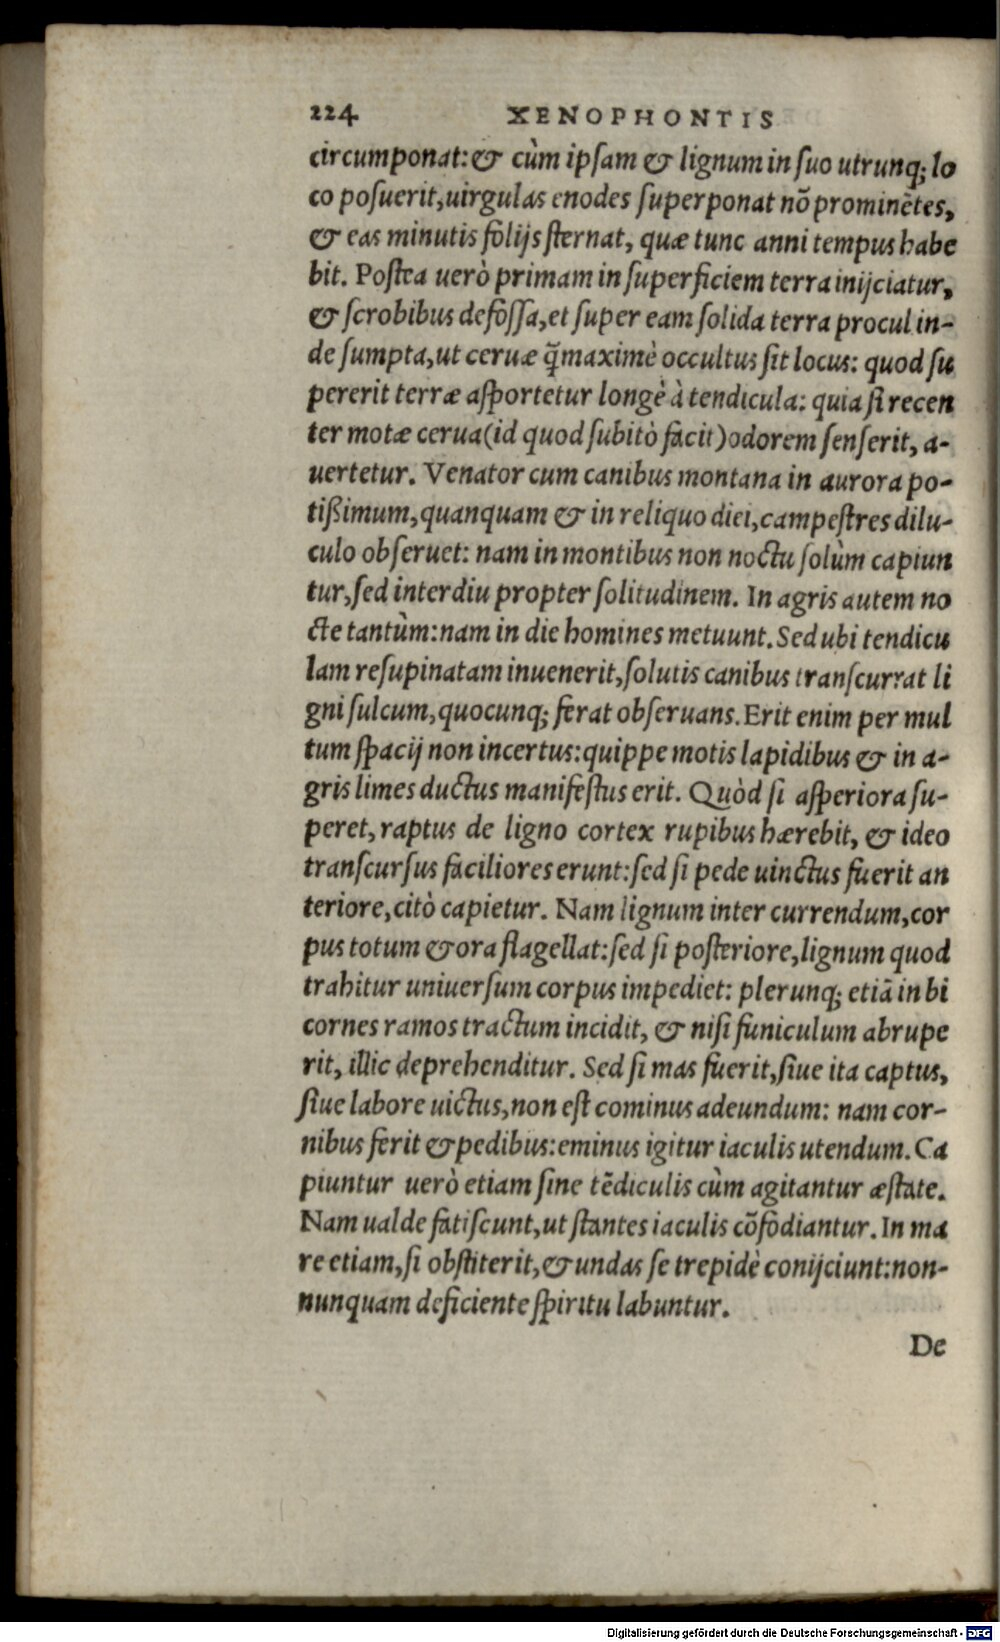 224 XENOPHONTIS
circumponat: & cùm ipſam & lignum in ſuo utrunq; lo
co poſuerit, uirgulas enodes ſuperponat nõ prominẽtes,
& eas minutis folijs ſternat, quæ tunc anni tempus habe
bit. Poſtea uerò primam in ſuperficiem terra inijciatur,
& ſcrobibus defoſſa, et ſuper eam ſolida terra procul in-
de ſumpta, ut ceruæ q̃maximè occultus ſit locus: quod ſu
pererit terræ aſportetur longè à tendicula: quia ſi recen
ter motæ cerua (id quod ſubitò facit) odorem ſenſerit, a-
uertetur. Venator cum canibus montana in aurora po-
tißimum, quanquam & in reliquo diei, campeſtres dilu-
culo obſeruet: nam in montibus non noctu ſolùm capiun
tur, ſed interdiu propter ſolitudinem. In agris autem no
cte tantùm: nam in die homines metuunt. Sed ubi tendicu
lam reſupinatam inuenerit, ſolutis canibus tranſcurrat li
gni ſulcum, quocunq; ferat obſeruans. Erit enim per mul
tum ſpacij non incertus: quippe motis lapidibus & in a-
gris limes ductus manifeſtus erit. Quòd ſi aſperiora ſu-
peret, raptus de ligno cortex rupibus hærebit, & ideo
tranſcurſus faciliores erunt: ſed ſi pede uinctus fuerit an
teriore, citò capietur. Nam lignum inter currendum, cor
pus totum & ora flagellat: ſed ſi poſteriore, lignum quod
trahitur uniuerſum corpus impediet: plerunq; etiã in bi
cornes ramos tractum incidit, & niſi funiculum abrupe
rit, illic deprehenditur. Sed ſi mas fuerit, ſiue ita captus,
ſiue labore uictus, non eſt cominus adeundum: nam cor-
nibus ferit & pedibus: eminus igitur iaculis utendum. Ca
piuntur uerò etiam ſine tẽdiculis cùm agitantur æſtate.
Nam ualde fatiſcunt, ut ſtantes iaculis cõfodiantur. In ma
re etiam, ſi obſtiterit, & undas ſe trepidè conijciunt: non-
nunquam deficiente ſpiritu labuntur.
De
Digitalisierung gefördert durch die Deutsche Forschungsgemeinschaft - DFG